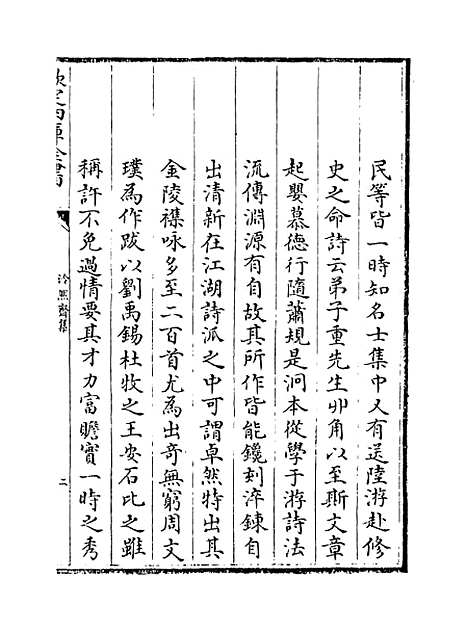 民等皆一時知名士集中又有送陸游赴修
史之命詩云弟子重先生丱角以至斯文章
起嬰慕德行隨蕭規是泂本從學于游詩法
流傳淵源有自故其所作皆能鑱刻淬鍊自
出清新在江湖詩派之中可謂卓然特出其
金陵襍咏多至二百首尤為出奇無窮周文
璞為作跋以劉禹錫杜牧之王安石比之雖
稱許不免過情要其才力富贍實一時之秀
欽定四庫全書
泠然齋集
二